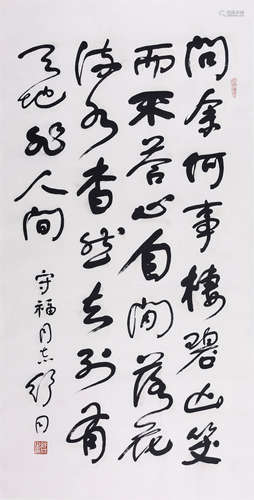 问余何事棲碧山笑
而不答心自闲落花
流水杳然去别有
天地非人间
守福同志舒同